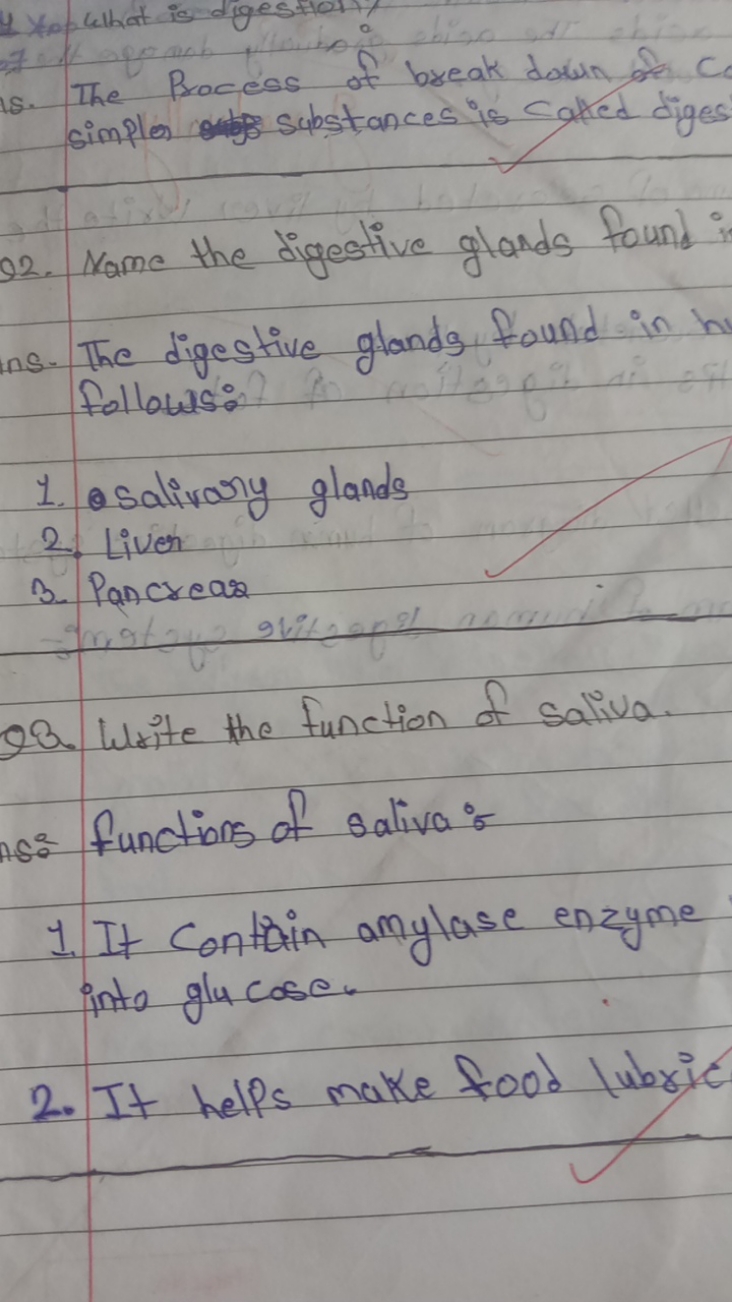 What is digestion?
ns. The Process of break down of Co
simples substances is called diges
Q2. Name the digestive glands found i
ns. The digestive glands found in hu
follows:
1. salivary glands
2. Liver
3. Pancreas
Q3. Write the function of saliva.
ns: functions of saliva :
1. It Contain amylase enzyme
into glucose.
2. It helps make food lubric